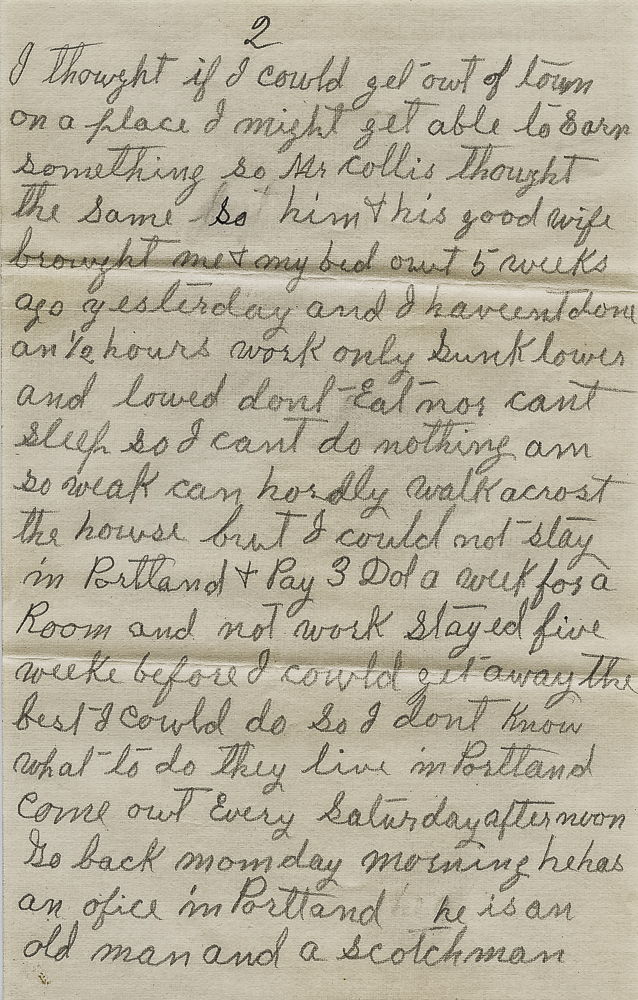 2
I thowght if I cowld get owt of town
on a place I might get able to Earn
something so Mr Collis thowght
the same so him & his good wife
browght me & my bed owt 5 weeks
ago yesterday and I haveent done
an ½ howrs work only Sunk lower
and lowed dont Eat nor cant
Sleep so I cant do nothing am
so weak can hordly walk acrost
the howse but I could not stay
in Portland & Pay 3 Dol a week for a
Room and not work Stayed five
weeke before I cowld get away the
best I cowld do So I dont Know
what to do they live in Portland
Come owt Every Saturday afternoon
Go back momday morning he has
an ofice in Portland he is an
old man and a Scotchman